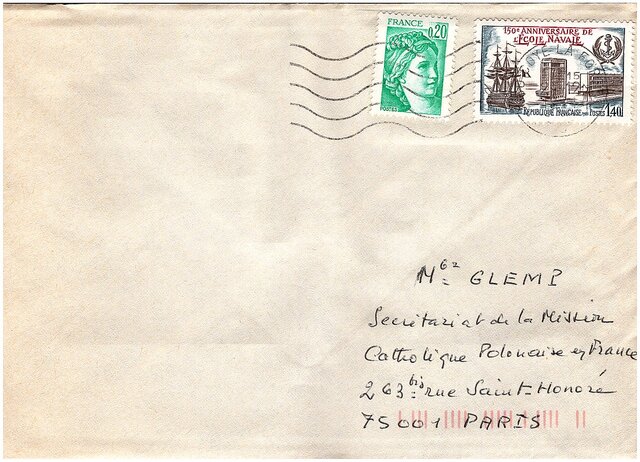 FRANCE
0,20
POSTES
150e ANNIVERSAIRE DE
L'ECOLE NAVALE
REPUBLIQUE FRANÇAISE POSTES
1,40
15
Mgr GLEMP
Secrétariat de la Mission
Catholique Polonaise en France
263 bis rue Saint-Honoré
75001 PARIS